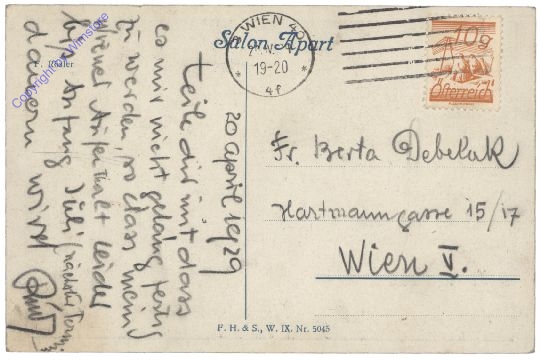 Salon Apart
F. Rösler
WIEN 40
19-20
4f
10g
Österreich
20 April 1929
teile dir mit dass
es mir nicht gelang fertig
zu werden, so dass mein
Wiener Aufenthalt leider
bis Anfang Juli (nächster Termin)
dauern wird
Fr. Berta Debelak
Hartmanngasse 15/17
Wien V.
F. H. & S., W. IX. Nr. 5045
Copyright Winstore